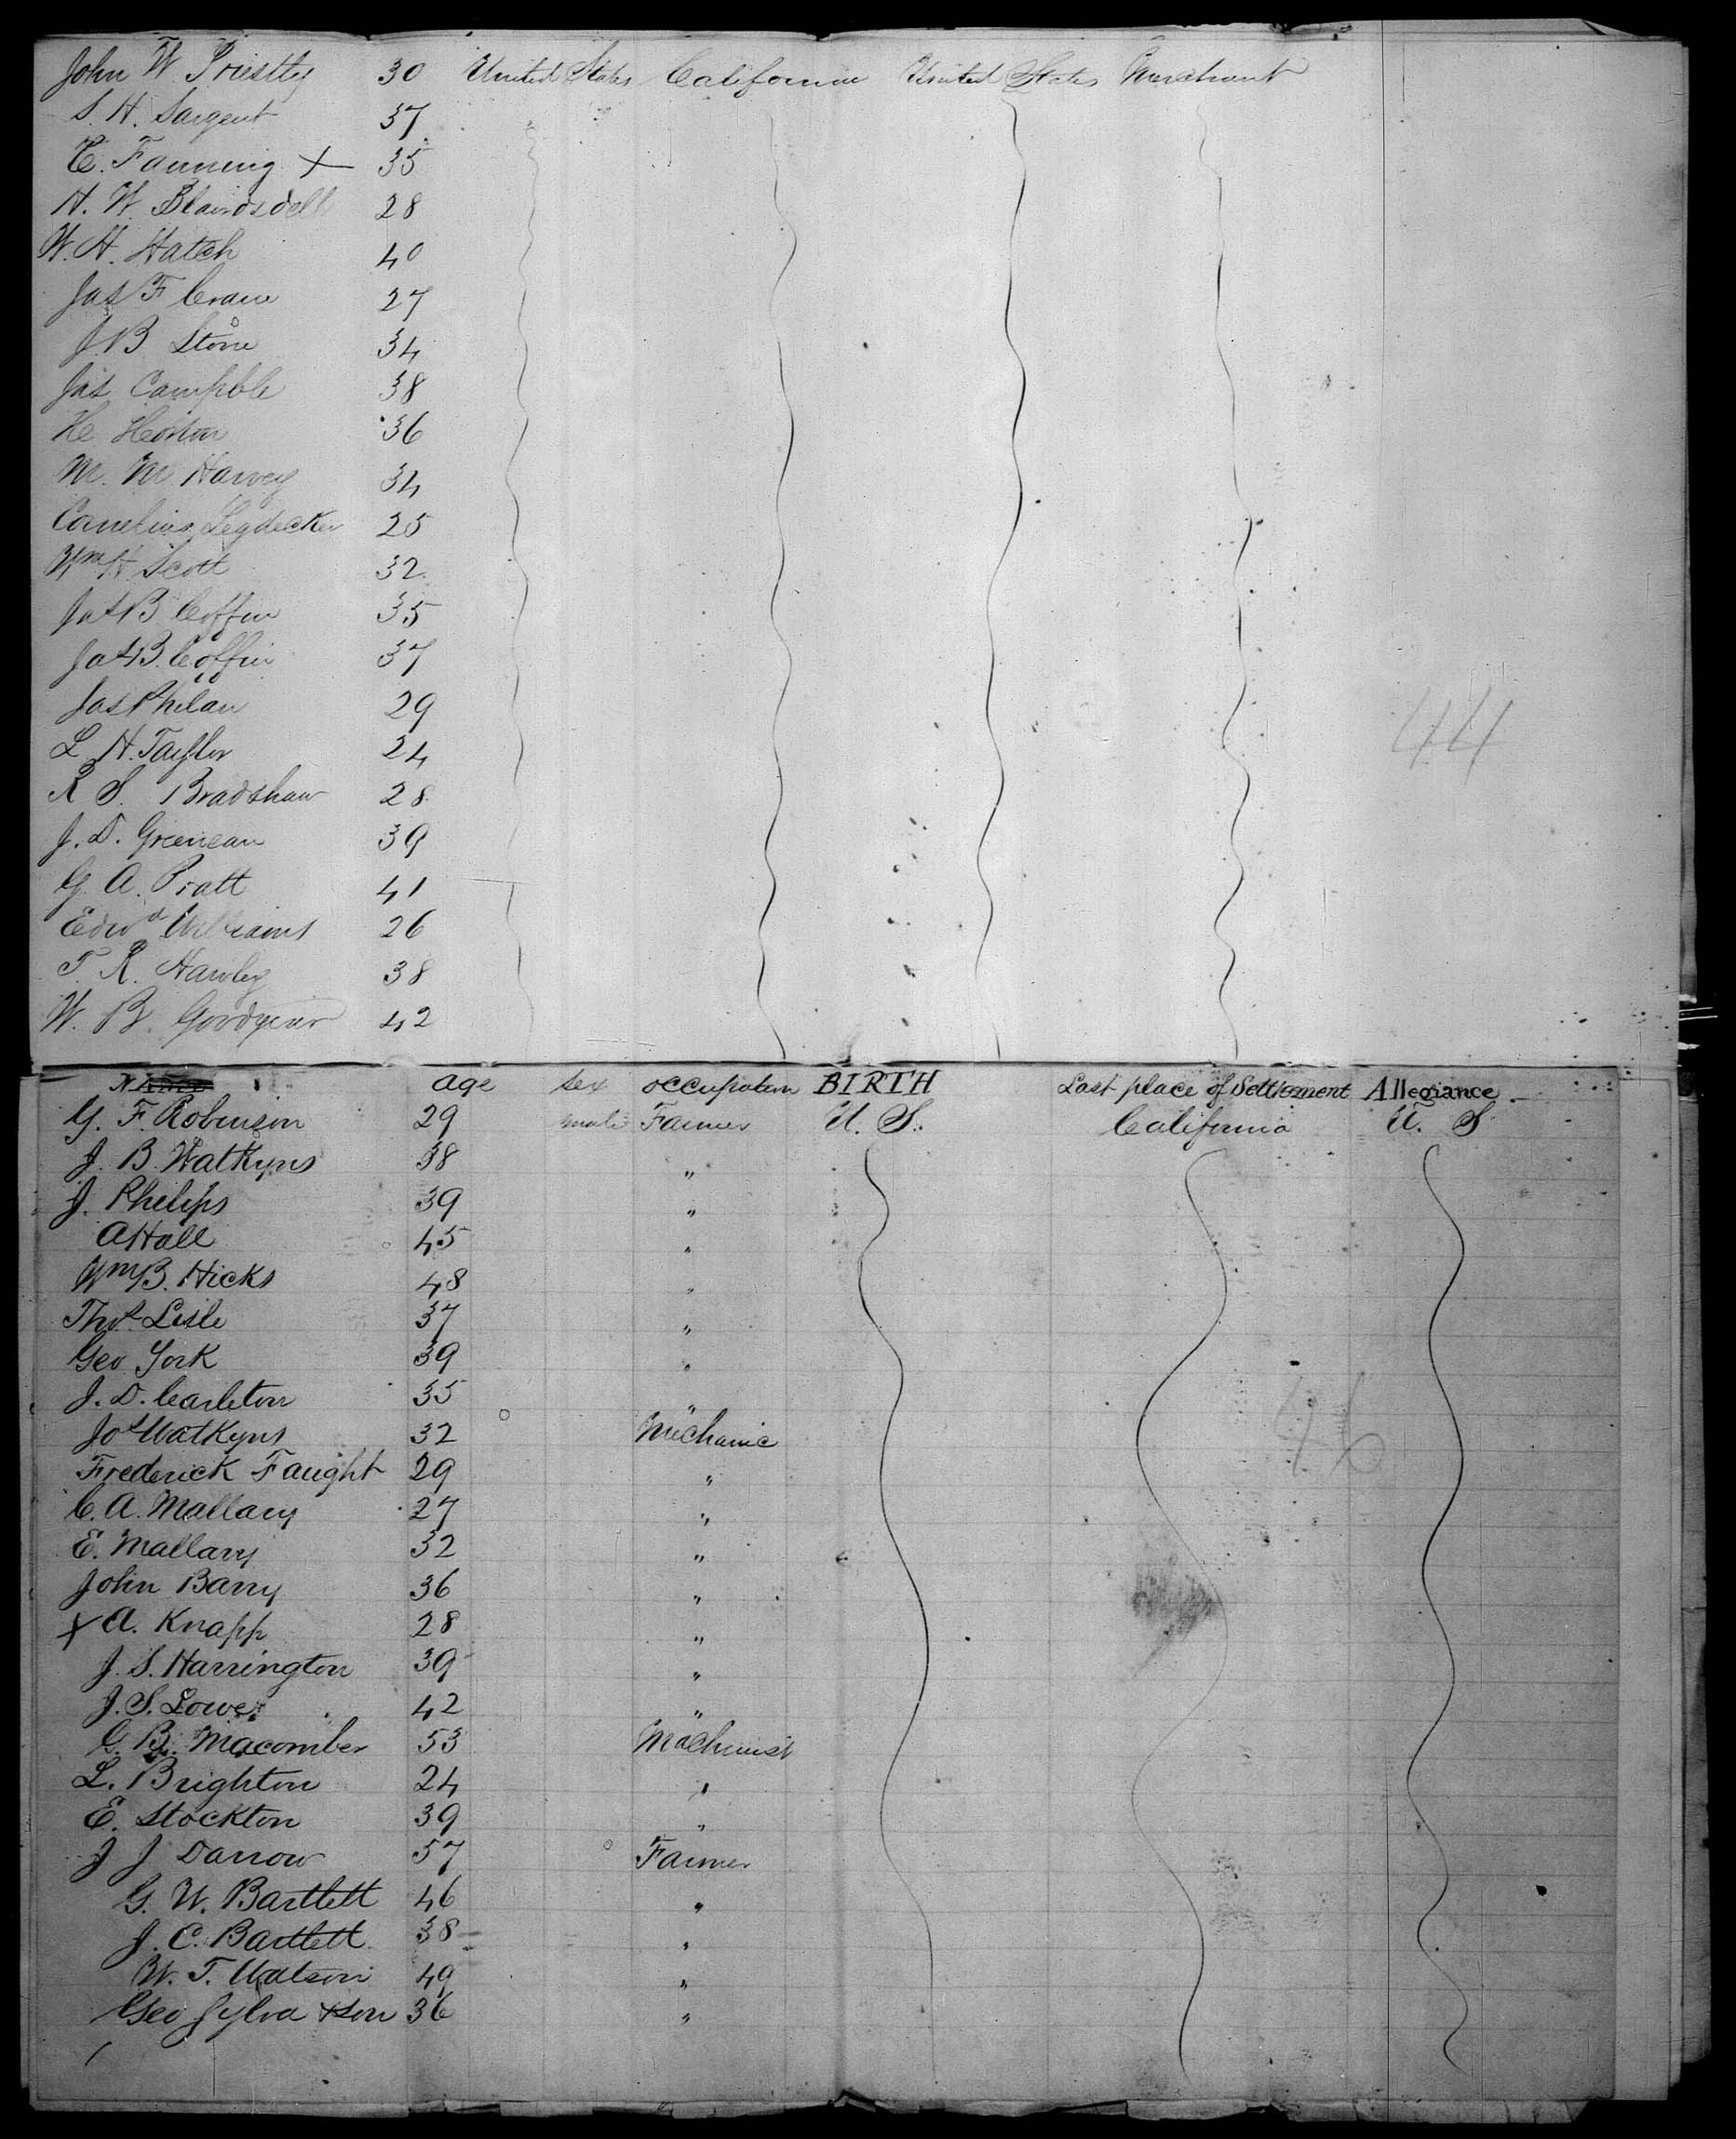 John W Priestly 30 United States California United States Merchant
S. H. Sargent 37
C. Fanning x 35
H. W. Blaindsdell 28
W. H. Hatch 40
Jas F Crane 27
J. B Stone 34
Jas Campble 38
Horton 36
M. M. Harvey 34
Cornelius Leydecker 25
Wm H. Scott 32
Jas B Coffin 35
Jas B. Coffin 37
Jas Phelan 29
L H. Taylor 24
R S. Bradshaw 28
J. D. 39
G. A. Pratt 41
Edwd Williams 26
T R. Hawley 38
W. B. Goodyear 42
44
Age Sex occupation BIRTH Last place of Settlement Allegiance
G. F. Robinson 29 male Farmer U. S. California U. S
J. B. Watkyns 38 "
J. Phelips 39 "
A Hall 45 "
Wm B. Hicks 48 "
Thos Lisle 37 "
Geo York 39 "
J. D. Carleton 35 "
Jos Watkyns 32 Mechanic
Frederick Faught 29 "
C. A. Mallary 27 "
E. Mallary 32 "
John Barry 36 "
x A. Knapp 28 "
J. S. Harrington 39 "
J. S. Lowe 42 "
G. B. Macomber 53 Machinist
L. Brighton 24 "
E. Stockton 39 "
J J Darrow 57 Farmer
G. W. Bartlett 46 "
J. C. Bartlett 38 "
W. T. Watson 49 "
Geo Sylva & son 36 "